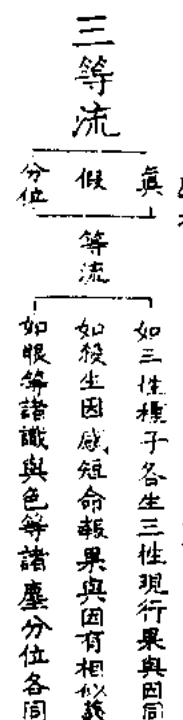 三等流
真
假
分位
等流
如三性種子各生三性現行果與因同
如殺生因感短命報果與因有相似義
如眼等諸識與色等諸塵分位各同